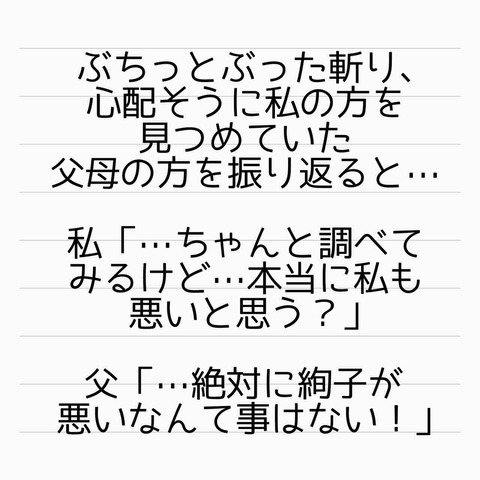 ぶちっとぶった斬り、
心配そうに私の方を
見つめていた
父母の方を振り返ると…
私「…ちゃんと調べて
みるけど…本当に私も
悪いと思う？」
父「…絶対に絢子が
悪いなんて事はない！」